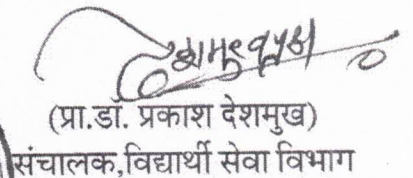 (प्रा.डॉ. प्रकाश देशमुख)
संचालक,विद्यार्थी सेवा विभाग